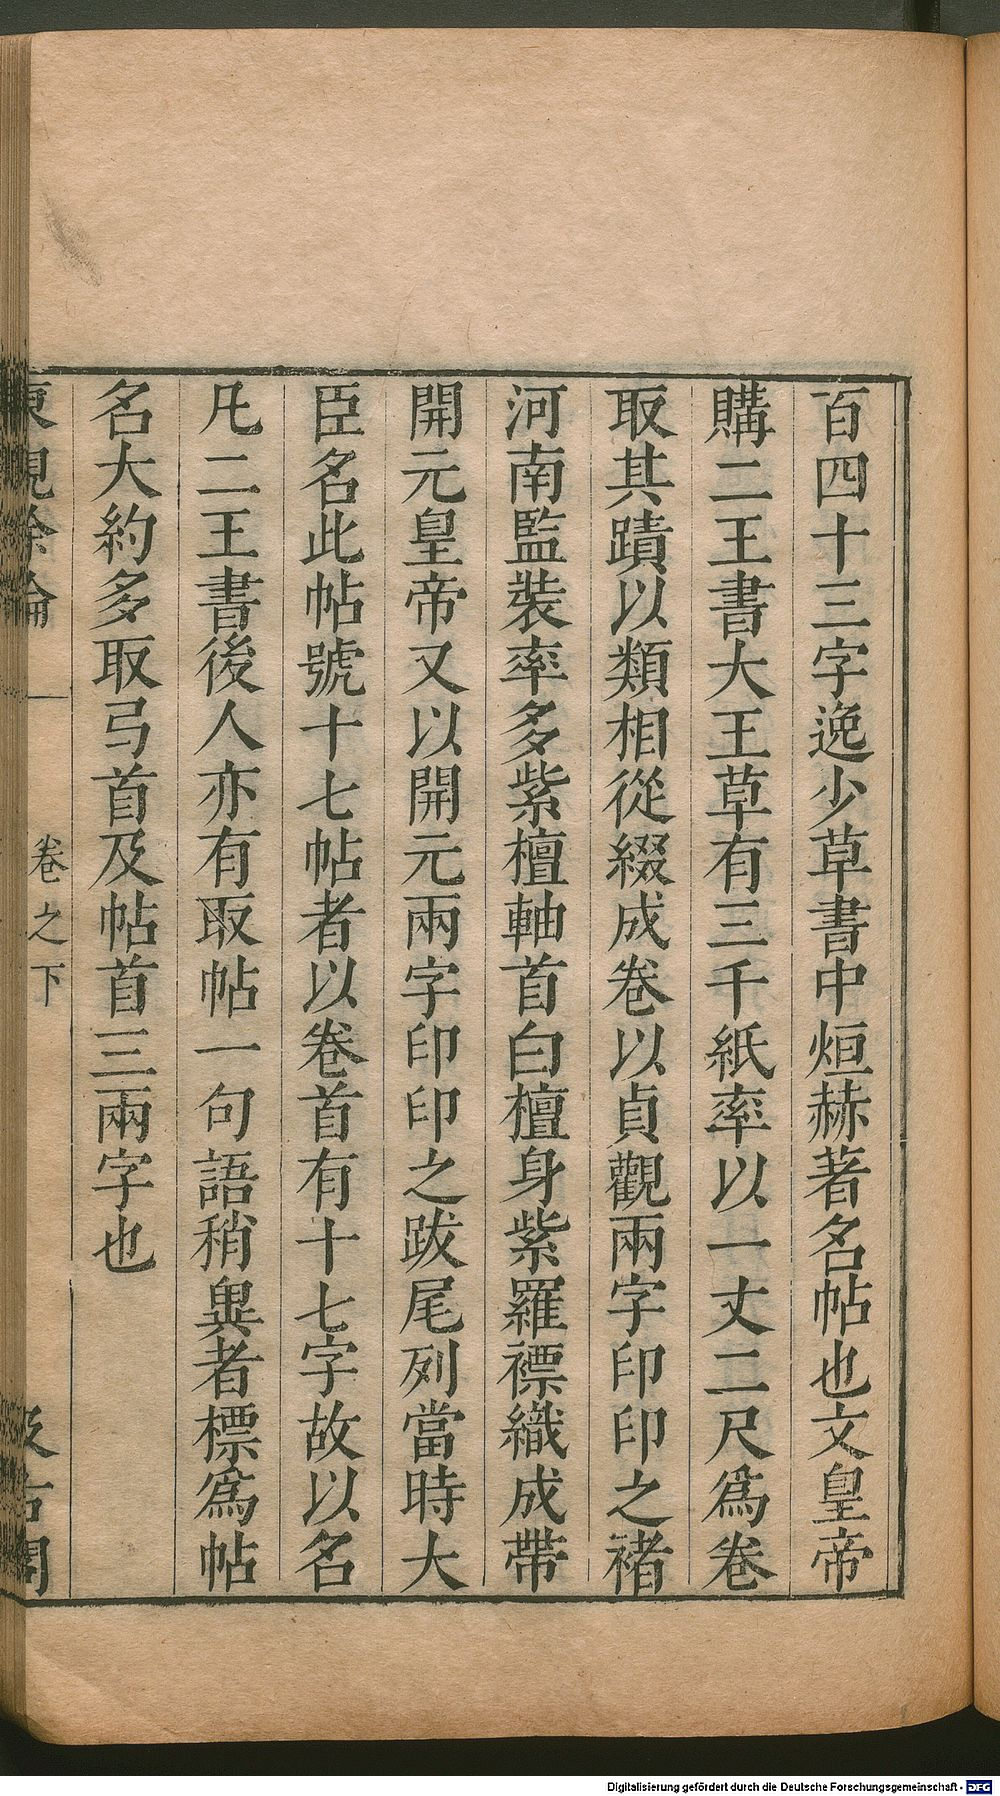 百四十三字逸少草書中烜赫著名帖也文皇帝
購二王書大王草有三千紙率以一丈二尺爲卷
取其蹟以類相從綴成卷以貞觀兩字印印之褚
河南監裝率多紫檀軸首白檀身紫羅褾織成帶
開元皇帝又以開元兩字印印之跋尾列當時大
臣名此帖號十七帖者以卷首有十七字故以名
凡二王書後人亦有取帖一句語稍異者標爲帖
名大約多取弓首及帖首三兩字也
東觀餘論 卷之下 汲古閣
Digitalisierung gefördert durch die Deutsche Forschungsgemeinschaft - DFG